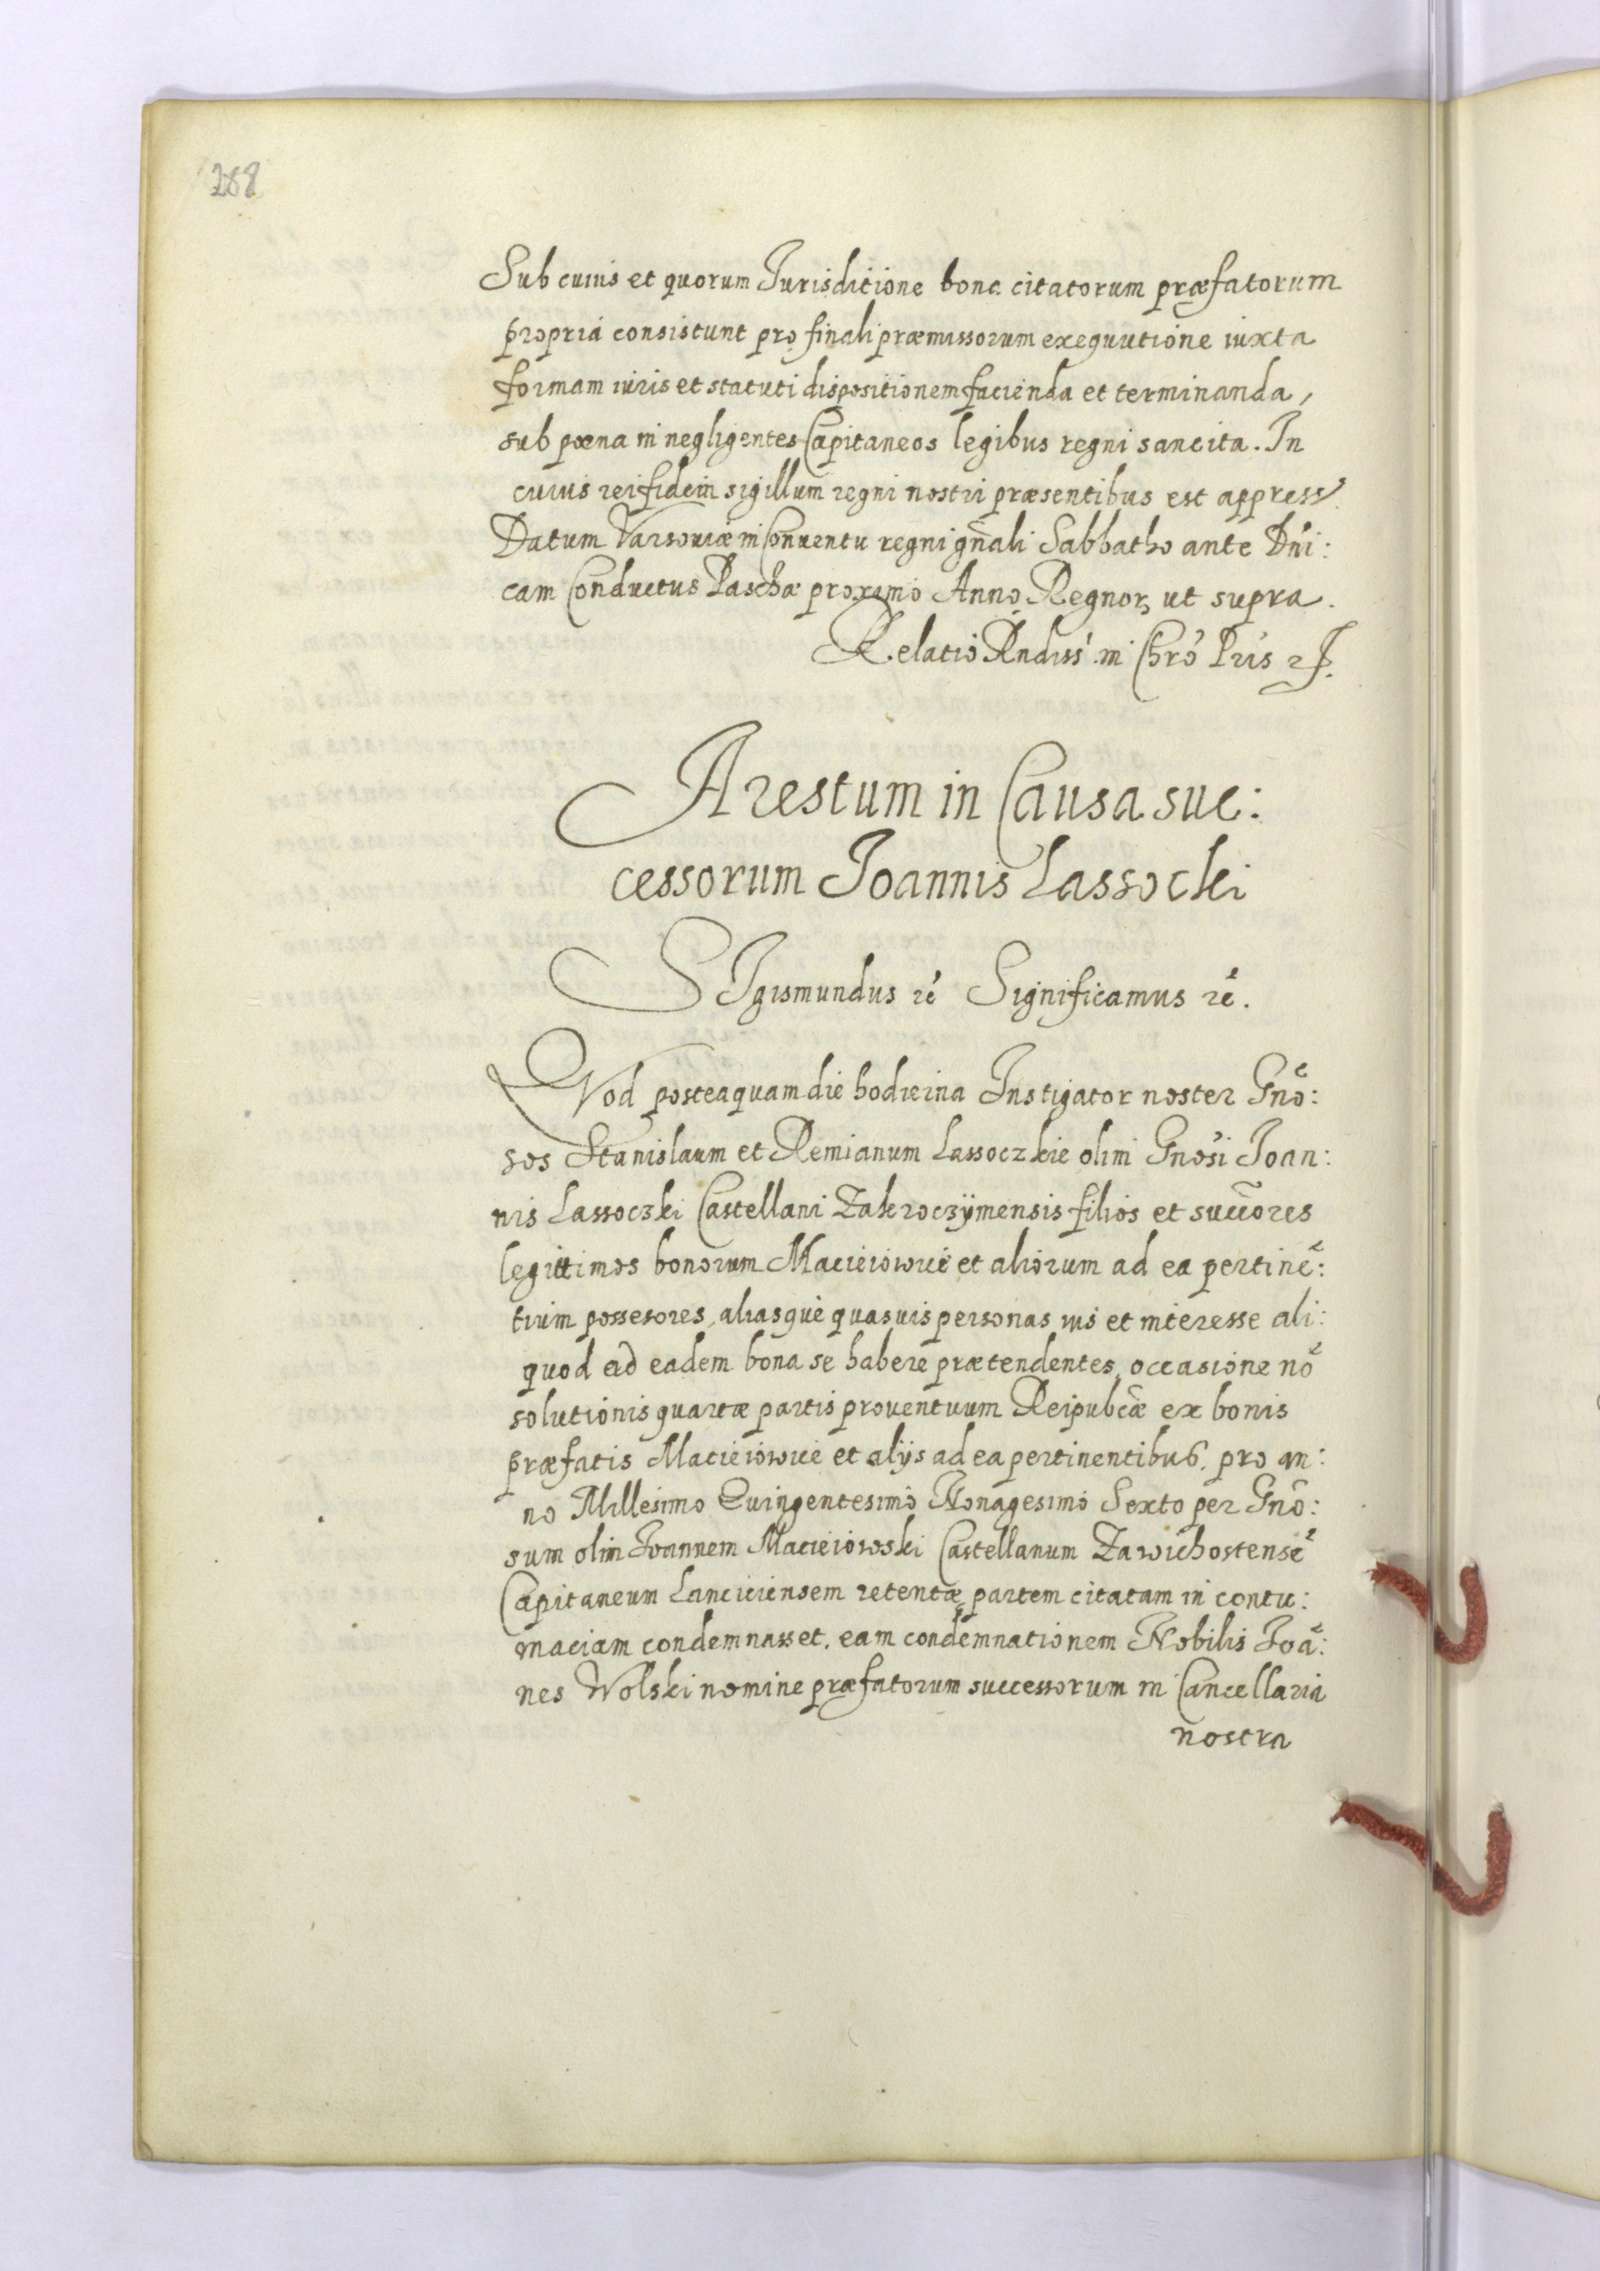 288
Sub cuius et quorum Jurisditione bona citatorum præfatorum
propria consistunt pro finali præmissorum exequutione iuxta
formam iuris et statuti dispositionem facienda et terminanda,
sub pœna in negligentes Capitaneos legibus regni sancita. In
cuius rei fidem sigillum regni nostri præsentibus est appress.
Datum Varsouiæ in Conuentu regni gñali Sabbatho ante Dni:
cam Conductus Paschæ proximo Anno Regnor ut supra.
Relatio Rndiss. in Chrõ Pris
Arestum in Causa suc:
cessorum Joannis Lassocki
SIgismundus rẽ Significamus rẽ.
QVod posteaquam die hodierna Instigator noster Gnõ:
sos Stanislaum et Remianum Lassoczkie olim Gnosi Joan:
nis Lassoczki Castellani Zakroczÿmensis filios et succõres
legittimos bonorum Macieiowice et aliorum ad ea pertinẽ:
tium possesores, aliasque quasuis personas ius et interesse ali:
quod ad eadem bona se habere prætendentes, occasione nõ
solutionis quartæ partis prouentuum Reipubcæ ex bonis
præfatis Macieiowice et alijs ad ea pertinentibus, pro an:
no Millesimo Quingentesimo Nonagesimo Sexto per Gnõ:
sum olim Joannem Macieiowski Castellanum Zawichostensẽ
Capitaneum Lanciciensem retentæ partem citatam in contu:
maciam condemnasset, eam condemnationem Nobilis Joã:
nes Wolski nomine præfatorum successorum in Cancellaria
nostra